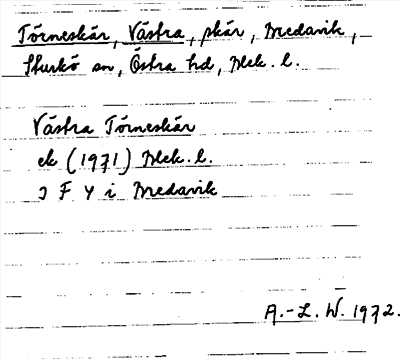 Törneskär, Västra, skär, Medavik,
Sturkö sn, Östra hd, Blek. l.
Västra Törneskär
ek (1971) Blek. l.
J F 4 i Medavik
A.-L. W. 1972.